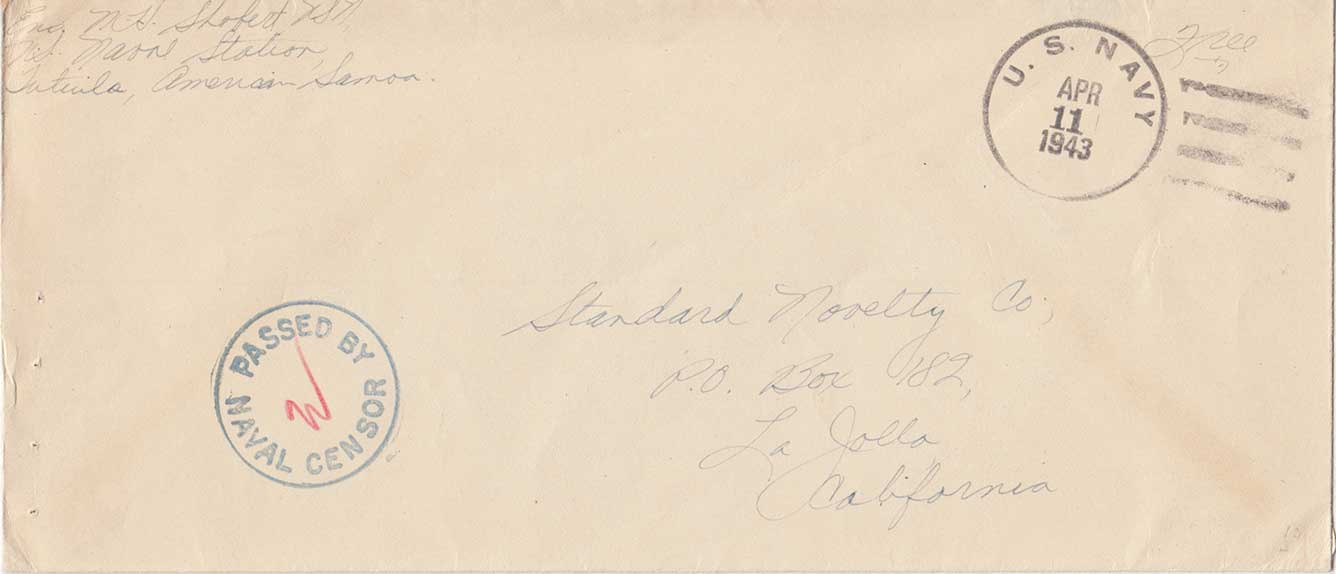 Ens. M.H. Shofert USN,
Naval Station,
Tutuila, American Samoa.
U. S. NAVY
APR
11
1943
Free
PASSED BY
NAVAL CENSOR
Standard Novelty Co,
P.O. Box 182,
La Jolla
California